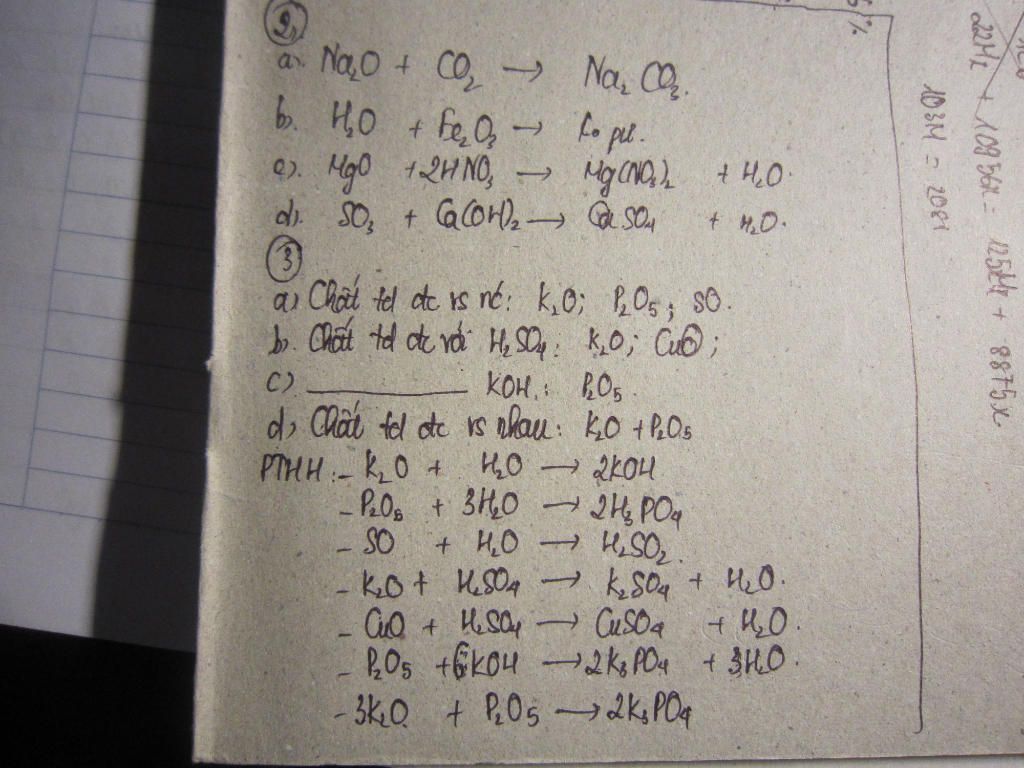 2,
a). Na₂O + CO₂ → Na₂CO₃.
b). H₂O + Fe₂O₃ → ko pư.
c). MgO + 2HNO₃ → Mg(NO₃)₂ + H₂O.
d). SO₃ + Ca(OH)₂ → CaSO₄ + H₂O.
3
a) Chất td đc vs nc: K₂O; P₂O₅; SO.
b). Chất td đc với H₂SO₄: K₂O; CuO;
c) ———— KOH: P₂O₅.
d) Chất td đc vs nhau: K₂O + P₂O₅
PTHH: - K₂O + H₂O → 2KOH
- P₂O₅ + 3H₂O → 2H₃PO₄
- SO + H₂O → H₂SO₂.
- K₂O + H₂SO₄ → K₂SO₄ + H₂O.
- CuO + H₂SO₄ → CuSO₄ + H₂O.
- P₂O₅ + 6KOH → 2K₃PO₄ + 3H₂O.
- 3K₂O + P₂O₅ → 2K₃PO₄